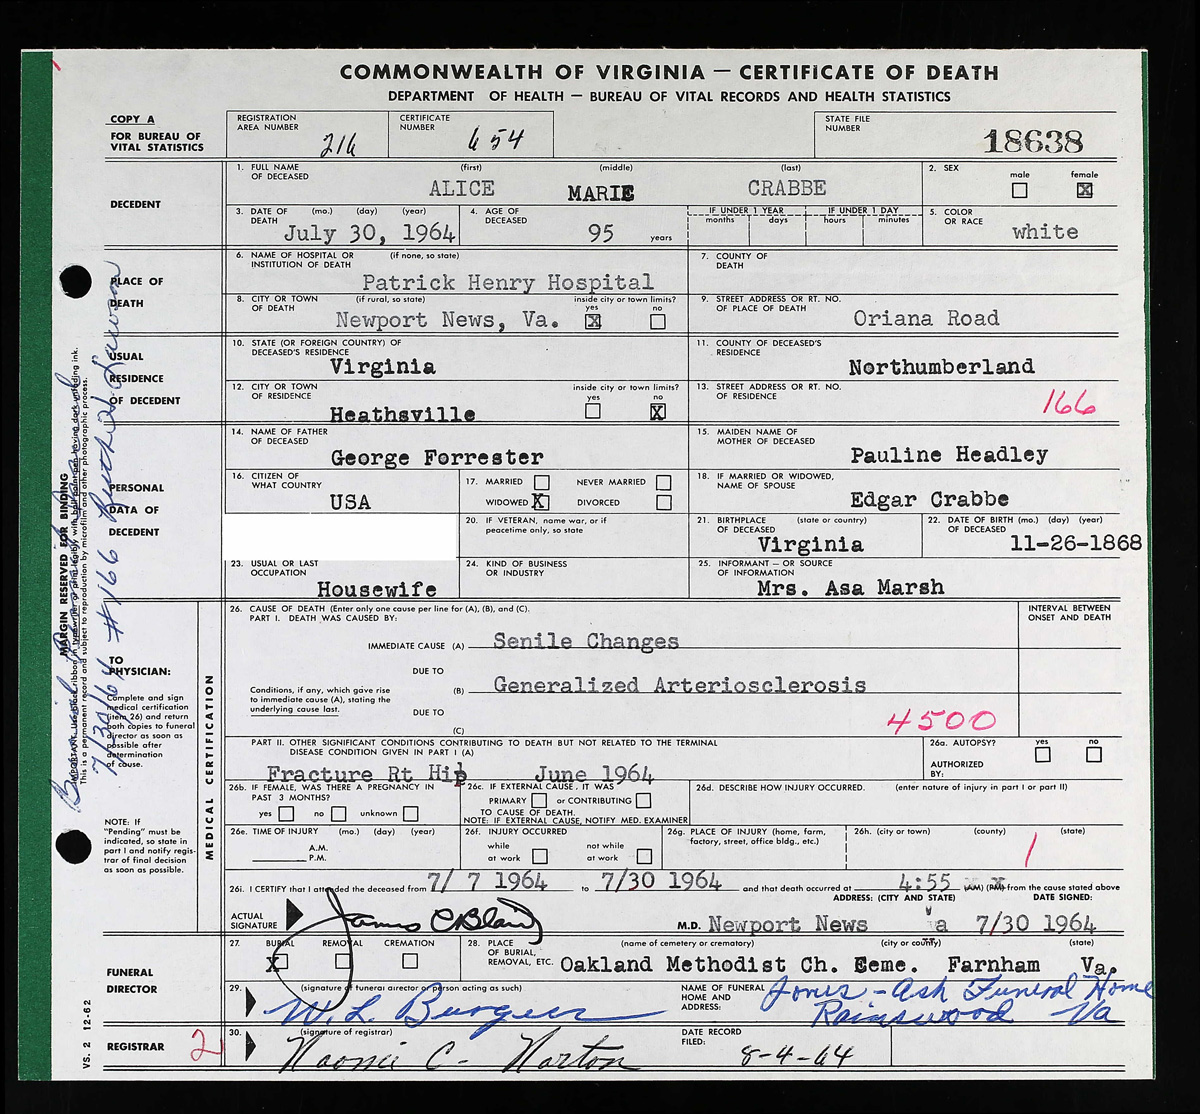 COMMONWEALTH OF VIRGINIA — CERTIFICATE OF DEATH
DEPARTMENT OF HEALTH — BUREAU OF VITAL RECORDS AND HEALTH STATISTICS
COPY A
FOR BUREAU OF VITAL STATISTICS
REGISTRATION AREA NUMBER 216
CERTIFICATE NUMBER 654
STATE FILE NUMBER 18638
DECEDENT
1. FULL NAME OF DECEASED (first) (middle) (last)
ALICE MARIE CRABBE
2. SEX male female X
3. DATE OF DEATH (mo.) (day) (year) July 30, 1964
4. AGE OF DECEASED 95 years
IF UNDER 1 YEAR months days
IF UNDER 1 DAY hours minutes
5. COLOR OR RACE white
PLACE OF DEATH
6. NAME OF HOSPITAL OR INSTITUTION OF DEATH (if none, so state) Patrick Henry Hospital
7. COUNTY OF DEATH
8. CITY OR TOWN OF DEATH (if rural, so state) Newport News, Va. inside city or town limits? yes X no
9. STREET ADDRESS OR RT. NO. OF PLACE OF DEATH Oriana Road
USUAL RESIDENCE OF DECEDENT
10. STATE (OR FOREIGN COUNTRY) OF DECEASED'S RESIDENCE Virginia
11. COUNTY OF DECEASED'S RESIDENCE Northumberland
12. CITY OR TOWN OF RESIDENCE Heathsville inside city or town limits? yes no X
13. STREET ADDRESS OR RT. NO. OF RESIDENCE 166
PERSONAL DATA OF DECEDENT
14. NAME OF FATHER OF DECEASED George Forrester
15. MAIDEN NAME OF MOTHER OF DECEASED Pauline Headley
16. CITIZEN OF WHAT COUNTRY USA
17. MARRIED NEVER MARRIED WIDOWED X DIVORCED
18. IF MARRIED OR WIDOWED, NAME OF SPOUSE Edgar Crabbe
20. IF VETERAN, name war, or if peacetime only, so state
21. BIRTHPLACE OF DECEASED (state or country) Virginia
22. DATE OF BIRTH (mo.) (day) (year) OF DECEASED 11-26-1868
23. USUAL OR LAST OCCUPATION Housewife
24. KIND OF BUSINESS OR INDUSTRY
25. INFORMANT — OR SOURCE OF INFORMATION Mrs. Asa Marsh
MARGIN RESERVED FOR BINDING
This is a permanent record and subject to reproduction by microfilm and other photographic process.
7/30/64 #166
TO PHYSICIAN:
Complete and sign medical certification (item 26) and return both copies to funeral director as soon as possible after determination of cause.
NOTE: If "Pending" must be indicated, so state in part I and notify registrar of final decision as soon as possible.
MEDICAL CERTIFICATION
26. CAUSE OF DEATH (Enter only one cause per line for (A), (B), and (C).
INTERVAL BETWEEN ONSET AND DEATH
PART I. DEATH WAS CAUSED BY:
IMMEDIATE CAUSE (A) Senile Changes
DUE TO
Conditions, if any, which gave rise to immediate cause (A), stating the underlying cause last.
(B) Generalized Arteriosclerosis
DUE TO
(C)
4500
PART II. OTHER SIGNIFICANT CONDITIONS CONTRIBUTING TO DEATH BUT NOT RELATED TO THE TERMINAL DISEASE CONDITION GIVEN IN PART I (A)
Fracture Rt Hip June 1964
26a. AUTOPSY? yes no
AUTHORIZED BY:
26b. IF FEMALE, WAS THERE A PREGNANCY IN PAST 3 MONTHS? yes no unknown
26c. IF EXTERNAL CAUSE, IT WAS PRIMARY or CONTRIBUTING TO CAUSE OF DEATH.
NOTE: IF EXTERNAL CAUSE, NOTIFY MED. EXAMINER
26d. DESCRIBE HOW INJURY OCCURRED. (enter nature of injury in part I or part II)
26e. TIME OF INJURY (mo.) (day) (year) A.M. P.M.
26f. INJURY OCCURRED while at work not while at work
26g. PLACE OF INJURY (home, farm, factory, street, office bldg., etc.)
26h. (city or town) (county) (state)
26i. I CERTIFY that I attended the deceased from 7/ 7 1964 to 7/30 1964 and that death occurred at 4:55 (AM) (PM) from the cause stated above
ACTUAL SIGNATURE James C Blair M.D.
ADDRESS: (CITY AND STATE) Newport News Va
DATE SIGNED: 7/30 1964
FUNERAL DIRECTOR
27. BURIAL X REMOVAL CREMATION
28. PLACE OF BURIAL, REMOVAL, ETC. (name of cemetery or crematory) (city or county) (state)
Oakland Methodist Ch. Ceme. Farnham Va.
29. (signature of funeral director or person acting as such) W. L. Burgess
NAME OF FUNERAL HOME AND ADDRESS: Jones-Ash Funeral Home
Rainswood Va
REGISTRAR 2
30. (signature of registrar) Naomi C. Norton
DATE RECORD FILED: 8-4-64
VS. 2 12-62